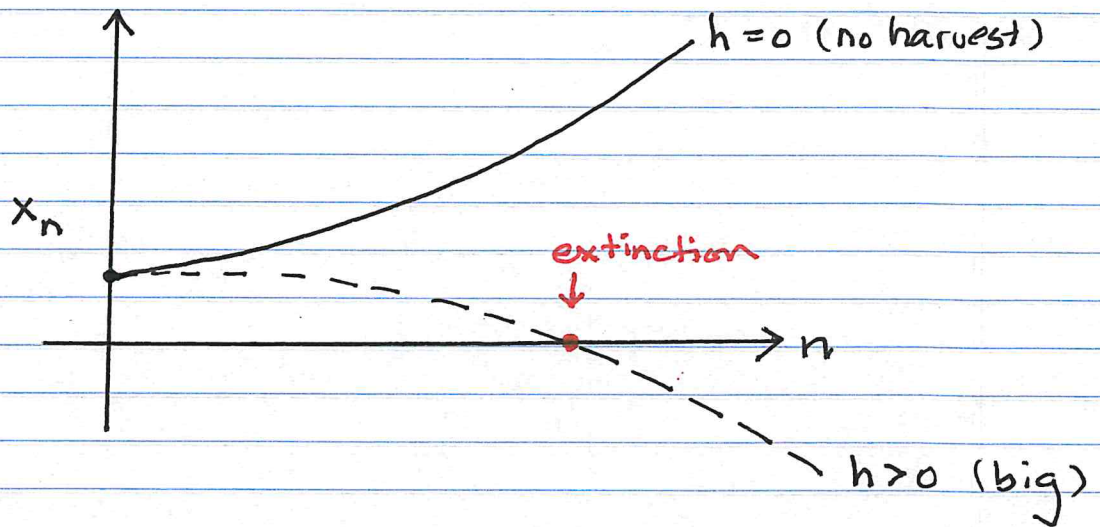 h = 0 (no harvest)
xₙ
extinction
n
h>0 (big)